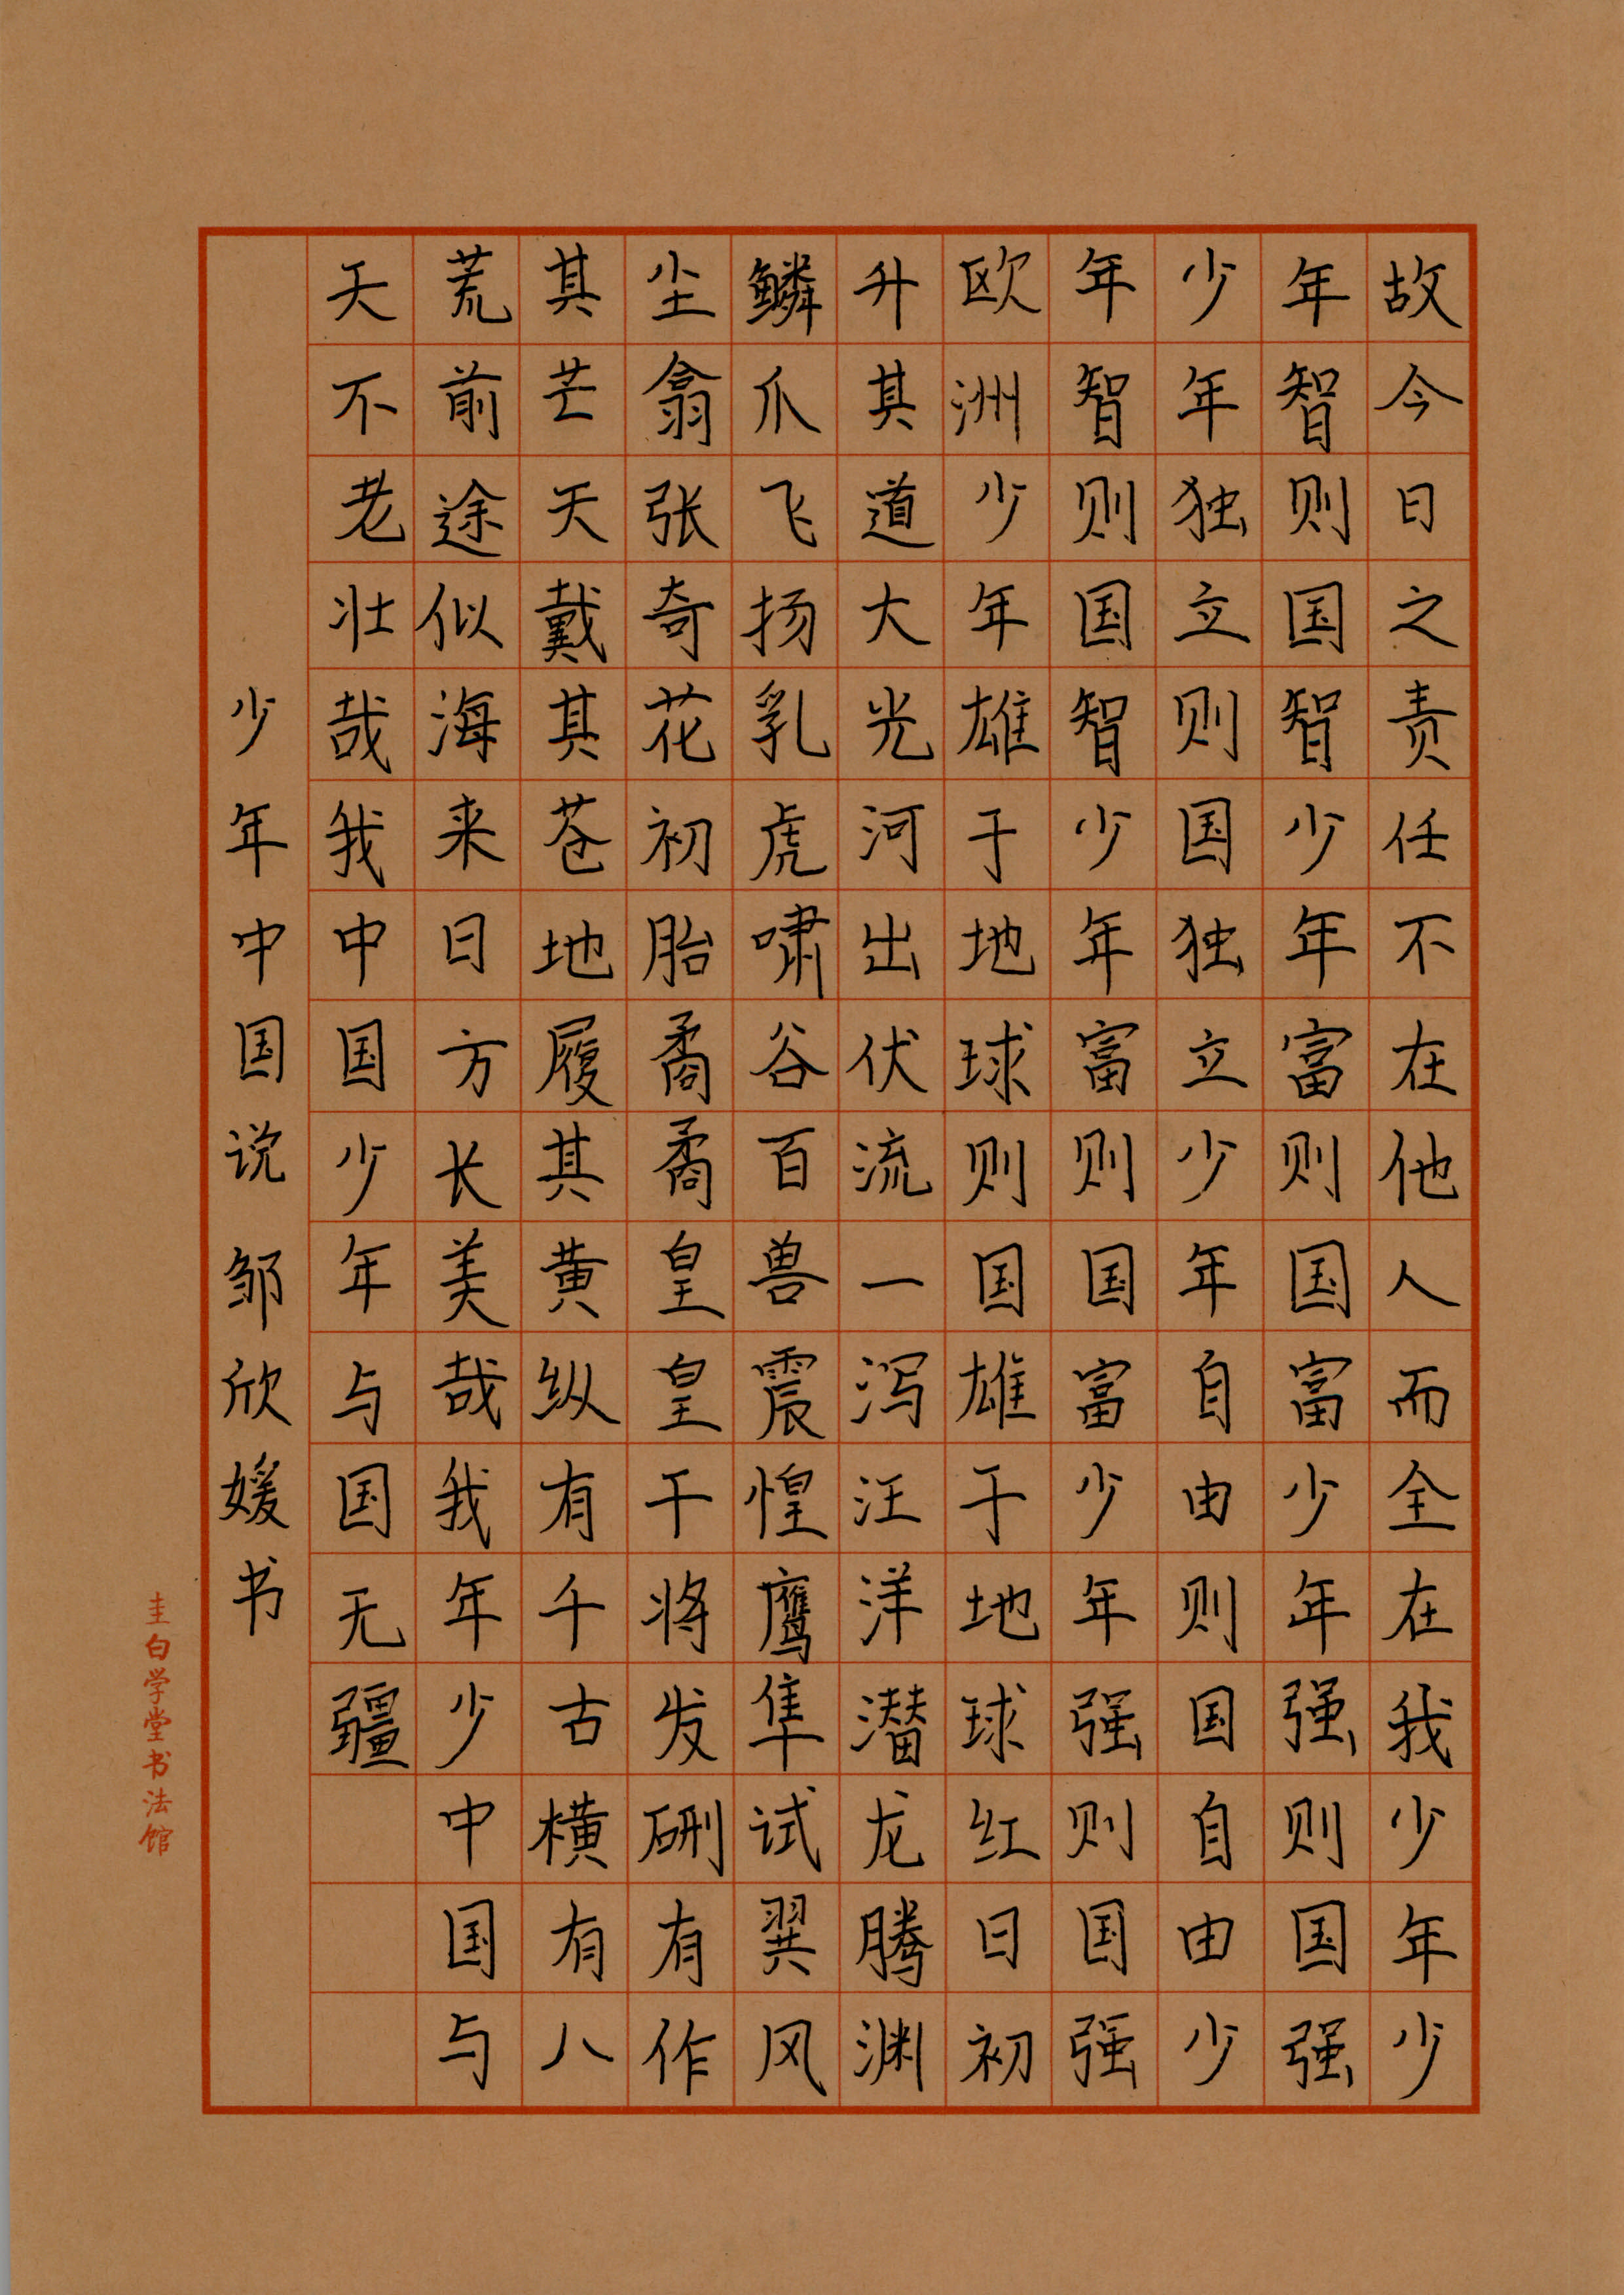 故今日之责任不在他人而全在我少年少
年智则国智少年富则国富少年强则国强
少年独立则国独立少年自由则国自由少
年智则国智少年富则国富少年强则国强
欧洲少年雄于地球则国雄于地球红日初
升其道大光河出伏流一泻汪洋潜龙腾渊
鳞爪飞扬乳虎啸谷百兽震惶鹰隼试翼风
尘翕张奇花初胎矞矞皇皇干将发硎有作
其芒天戴其苍地履其黄纵有千古横有八
荒前途似海来日方长美哉我年少中国与
天不老壮哉我中国少年与国无疆
少年中国说 邹欣媛书
圭白学堂书法馆